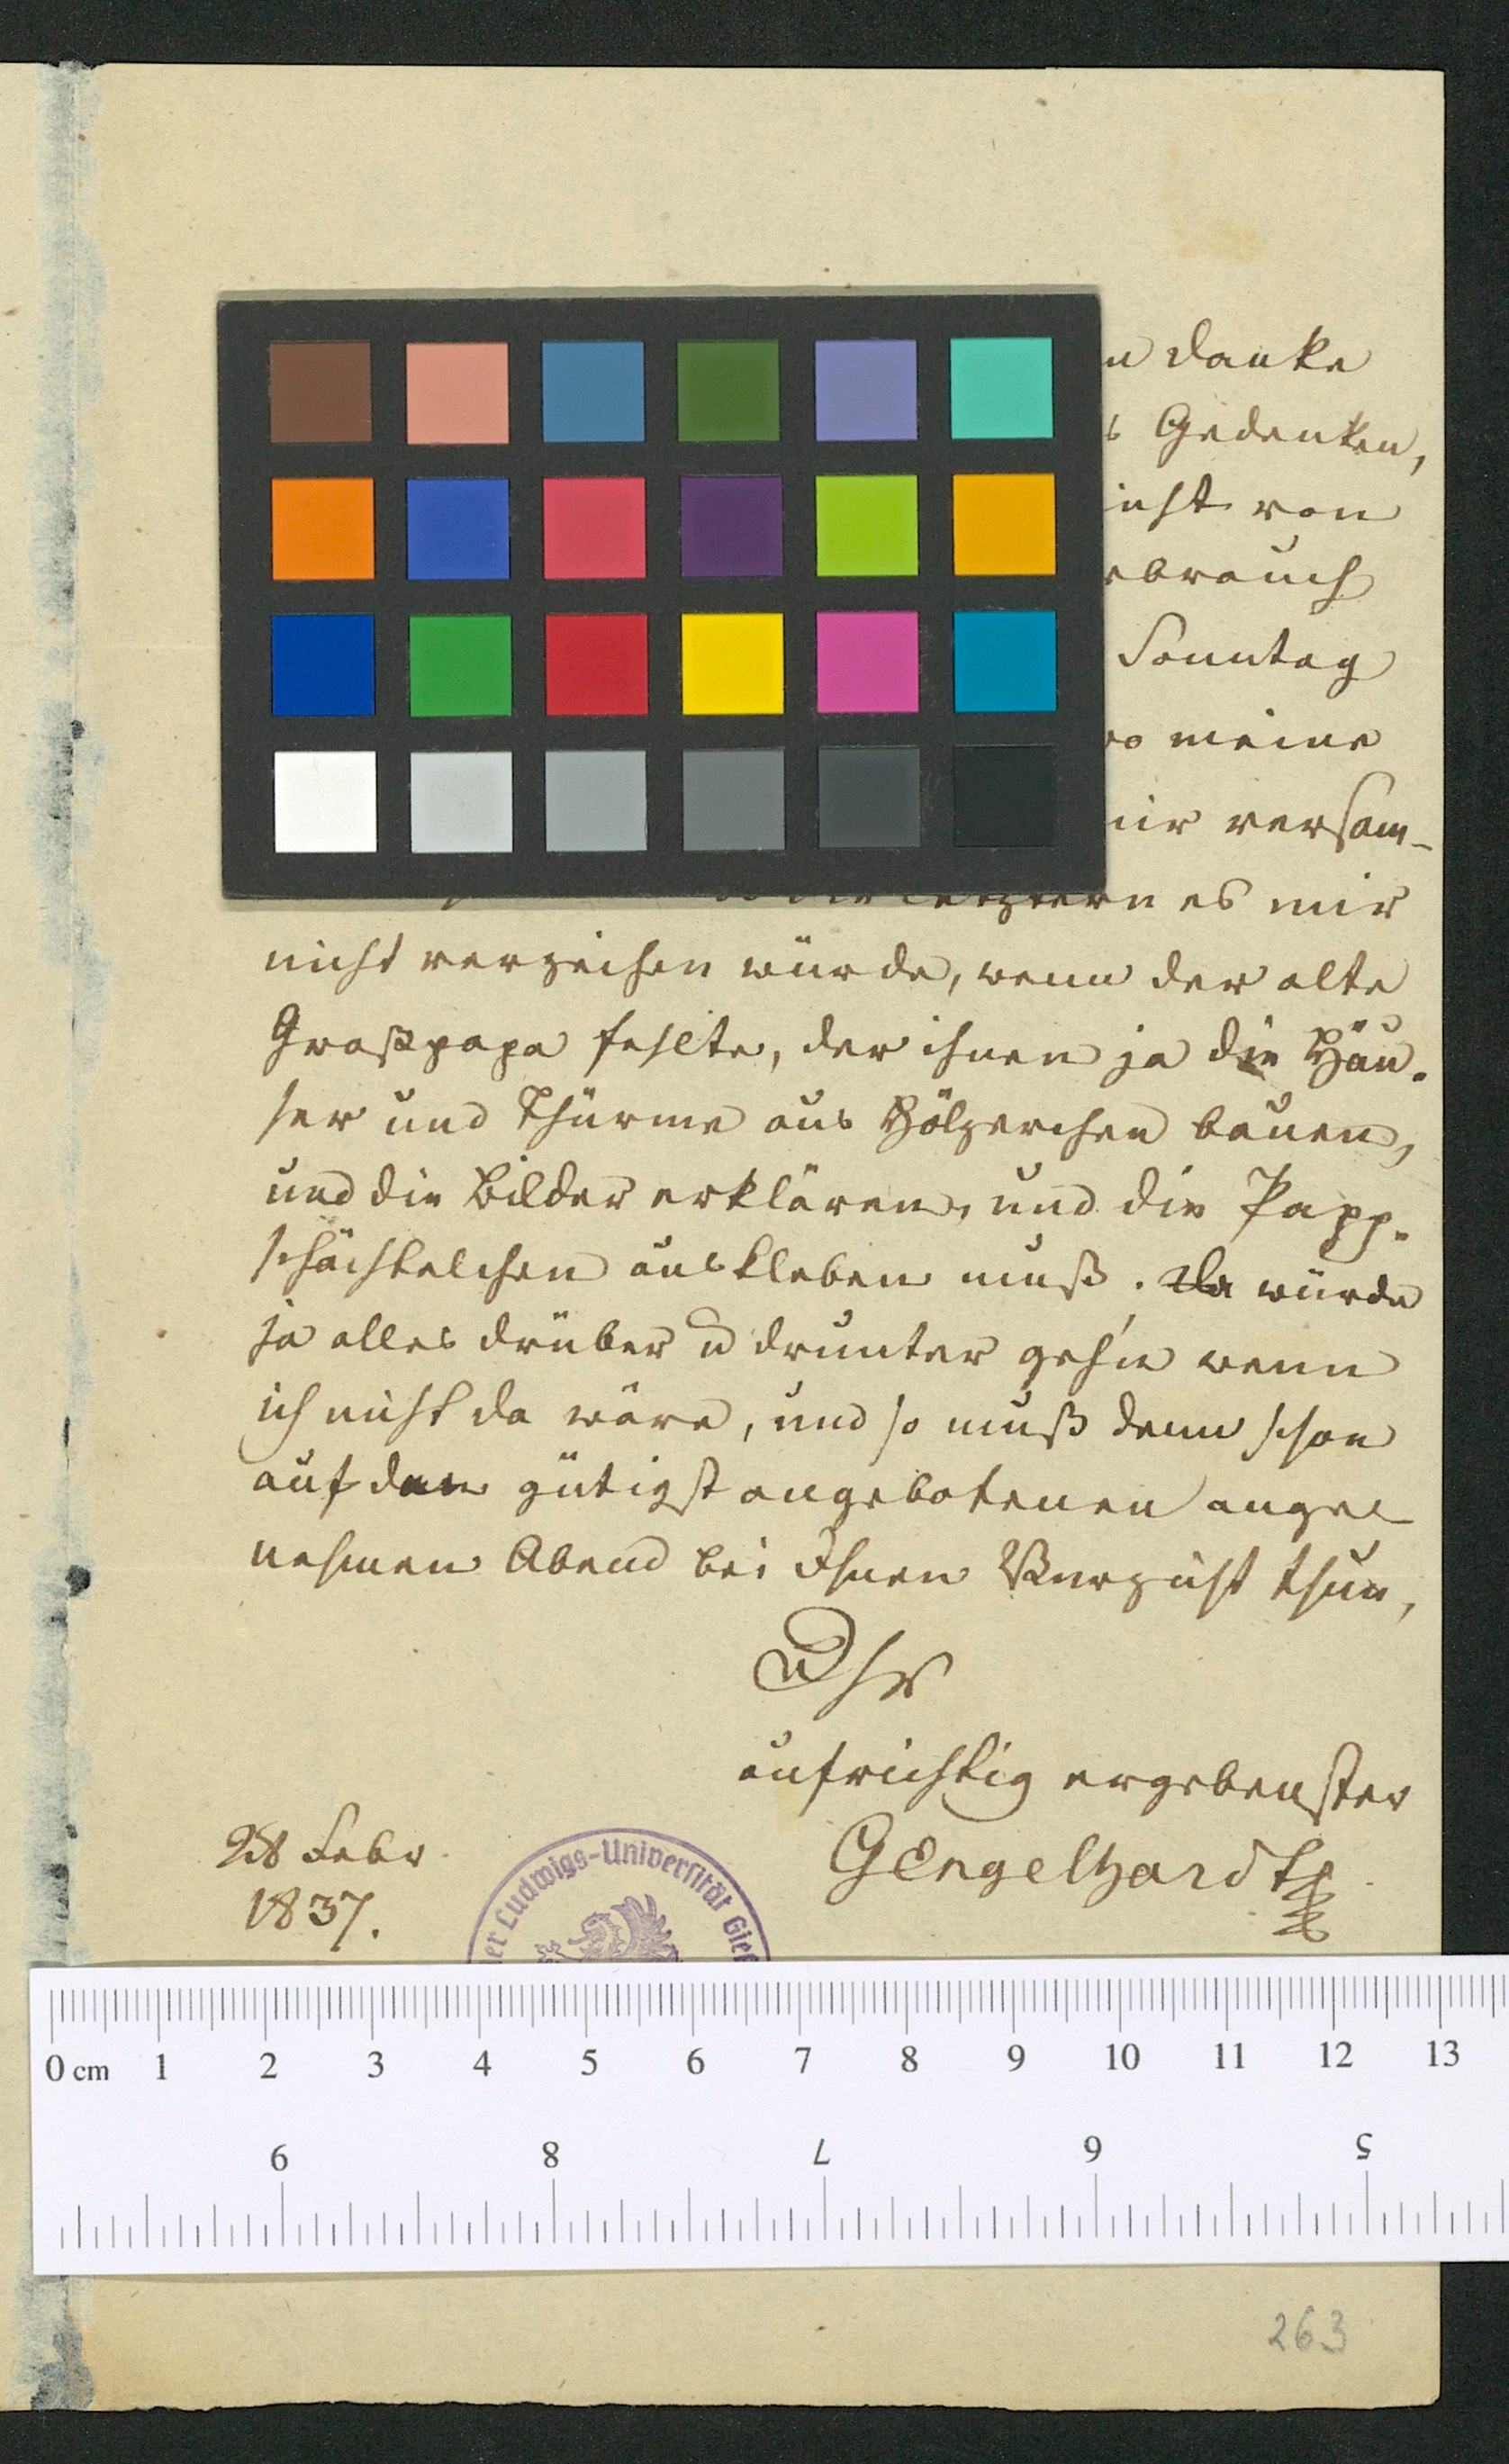 Danke
Gedenken,
von
Sonntag
meine
versam-
letztern es mir
nicht verzeihen würde, wenn der alte
Großpapa fehlte, der ihnen ja die Häu-
ser und Thürme aus Hölzerchen bauen,
und die Bilder erklären, und die Papp-
schächtelchen auskleben muß. Da würde
ja alles drüber u drunter geh'n wenn
ich nicht da wäre, und so muß denn schon
auf den gütigst angebotenen ange-
nehmen Abend bei Ihnen Verzicht thun,
Ihr
aufrichtig ergebenster
GEngelhardt
28 Febr
1837.
Ludwigs-Universität
0 cm 1 2 3 4 5 6 7 8 9 10 11 12 13
9 8 7 6 5
263